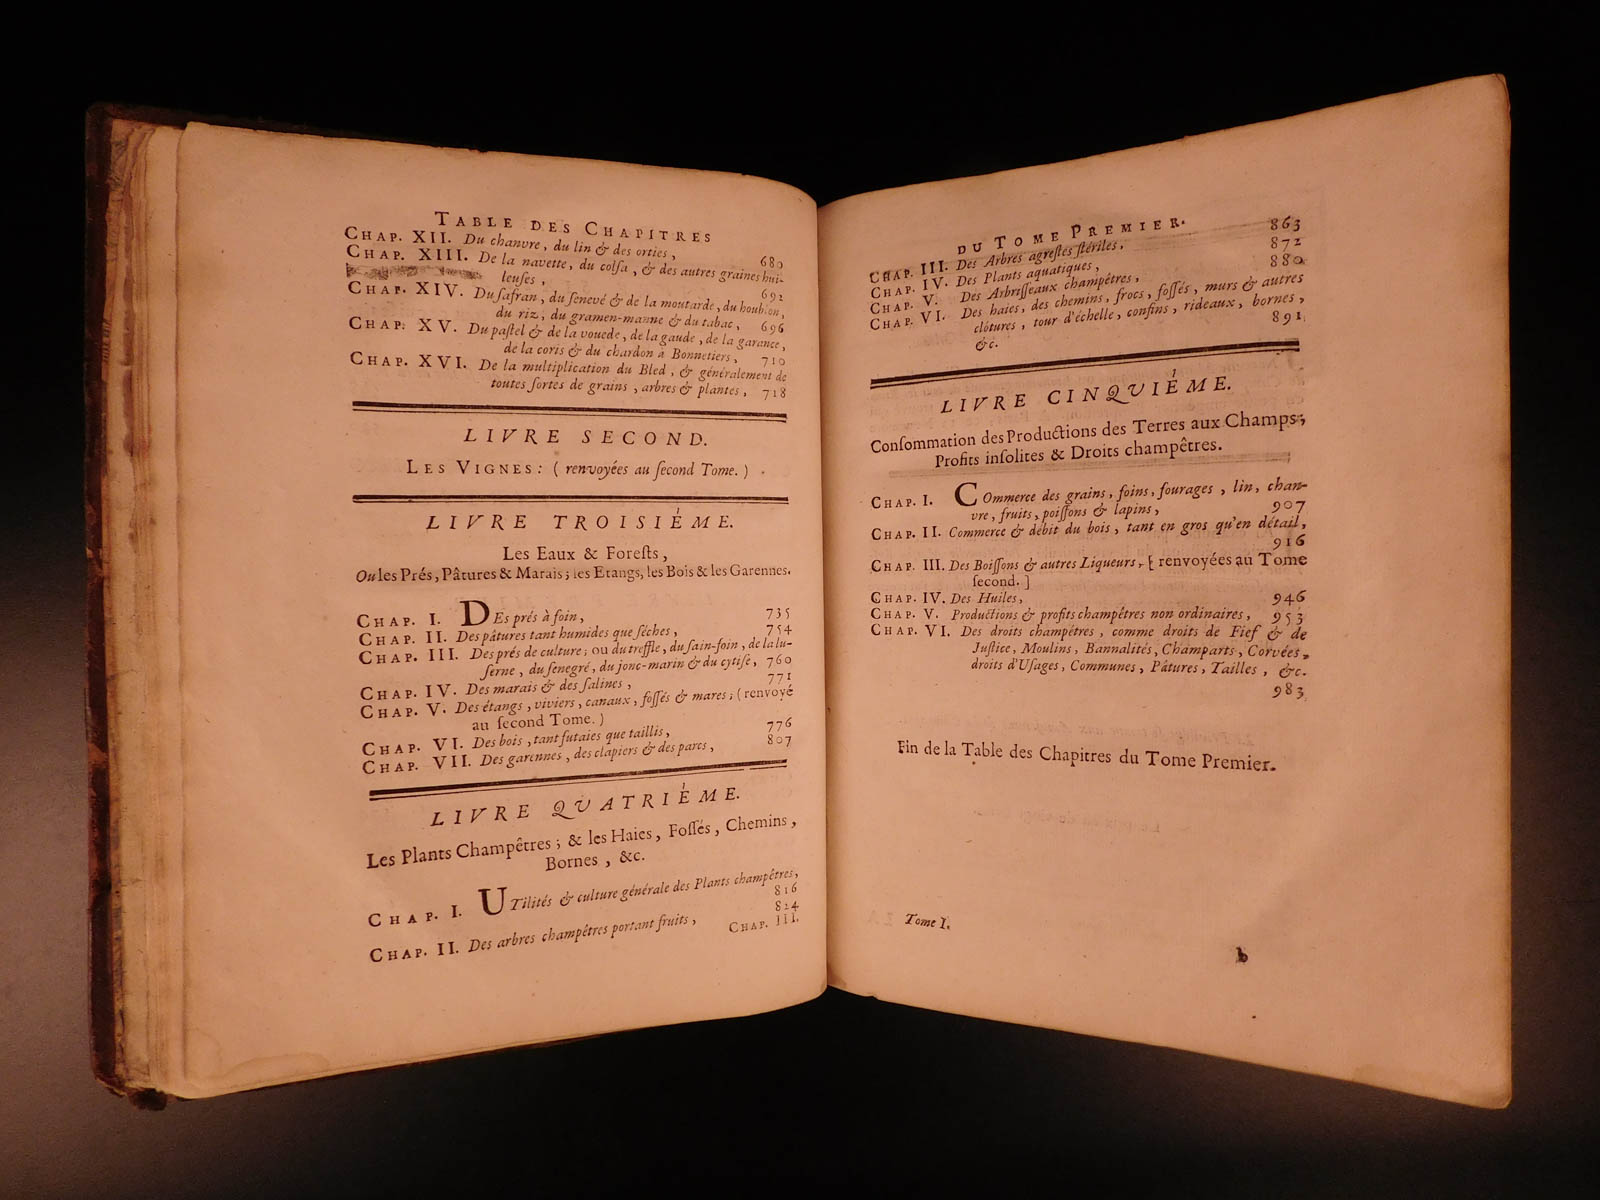 TABLE DES CHAPITRES
CHAP. XII. Du chanvre, du lin & des orties, 680
CHAP. XIII. De la navette, du colsa, & des autres graines hui-
leuses, 692
CHAP. XIV. Du safran, du senevé & de la moutarde, du houblon,
du riz, du gramen-manne & du tabac, 696
CHAP. XV. Du pastel & de la vouede, de la gaude, de la garance,
de la coris & du chardon à Bonnetiers, 710
CHAP. XVI. De la multiplication du Bled, & généralement de
toutes sortes de grains, arbres & plantes, 718
LIVRE SECOND.
LES VIGNES: (renvoyées au second Tome.)
LIVRE TROISIÉME.
Les Eaux & Forests,
Ou les Prés, Pâtures & Marais; les Etangs, les Bois & les Garennes.
CHAP. I. DEs prés à foin, 735
CHAP. II. Des pâtures tant humides que séches, 754
CHAP. III. Des prés de culture; ou du treffle, du sain-foin, de la lu-
serne, du senegré, du jonc-marin & du cytise, 760
CHAP. IV. Des marais & des salines, 771
CHAP. V. Des étangs, viviers, canaux, fossés & mares; (renvoyé
au second Tome.)
CHAP. VI. Des bois, tant futaies que taillis, 776
CHAP. VII. Des garennes, des clapiers & des parcs, 807
LIVRE QUATRIÉME.
Les Plants Champêtres; & les Haies, Fossés, Chemins,
Bornes, &c.
CHAP. I. UTilités & culture générale des Plants champêtres,
816
CHAP. II. Des arbres champêtres portant fruits, 824
CHAP. III.
DU TOME PREMIER.
CHAP. III. Des Arbres agrestes stériles, 863
CHAP. IV. Des Plants aquatiques, 872
CHAP. V. Des Arbrisseaux champêtres, 880
CHAP. VI. Des haies, des chemins, frocs, fossés, murs & autres
clôtures, tour d'échelle, confins, rideaux, bornes,
&c. 891
LIVRE CINQUIÉME.
Consommation des Productions des Terres aux Champs;
Profits insolites & Droits champêtres.
CHAP. I. COmmerce des grains, foins, fourages, lin, chan-
vre, fruits, poissons & lapins, 907
CHAP. II. Commerce & débit du bois, tant en gros qu'en détail,
916
CHAP. III. Des Boissons & autres Liqueurs, [renvoyées au Tome
second.]
CHAP. IV. Des Huiles, 946
CHAP. V. Productions & profits champêtres non ordinaires, 953
CHAP. VI. Des droits champêtres, comme droits de Fief & de
Justice, Moulins, Bannalités, Champarts, Corvées,
droits d'Usages, Communes, Pâtures, Tailles, &c.
983
Fin de la Table des Chapitres du Tome Premier.
Tome I.
b